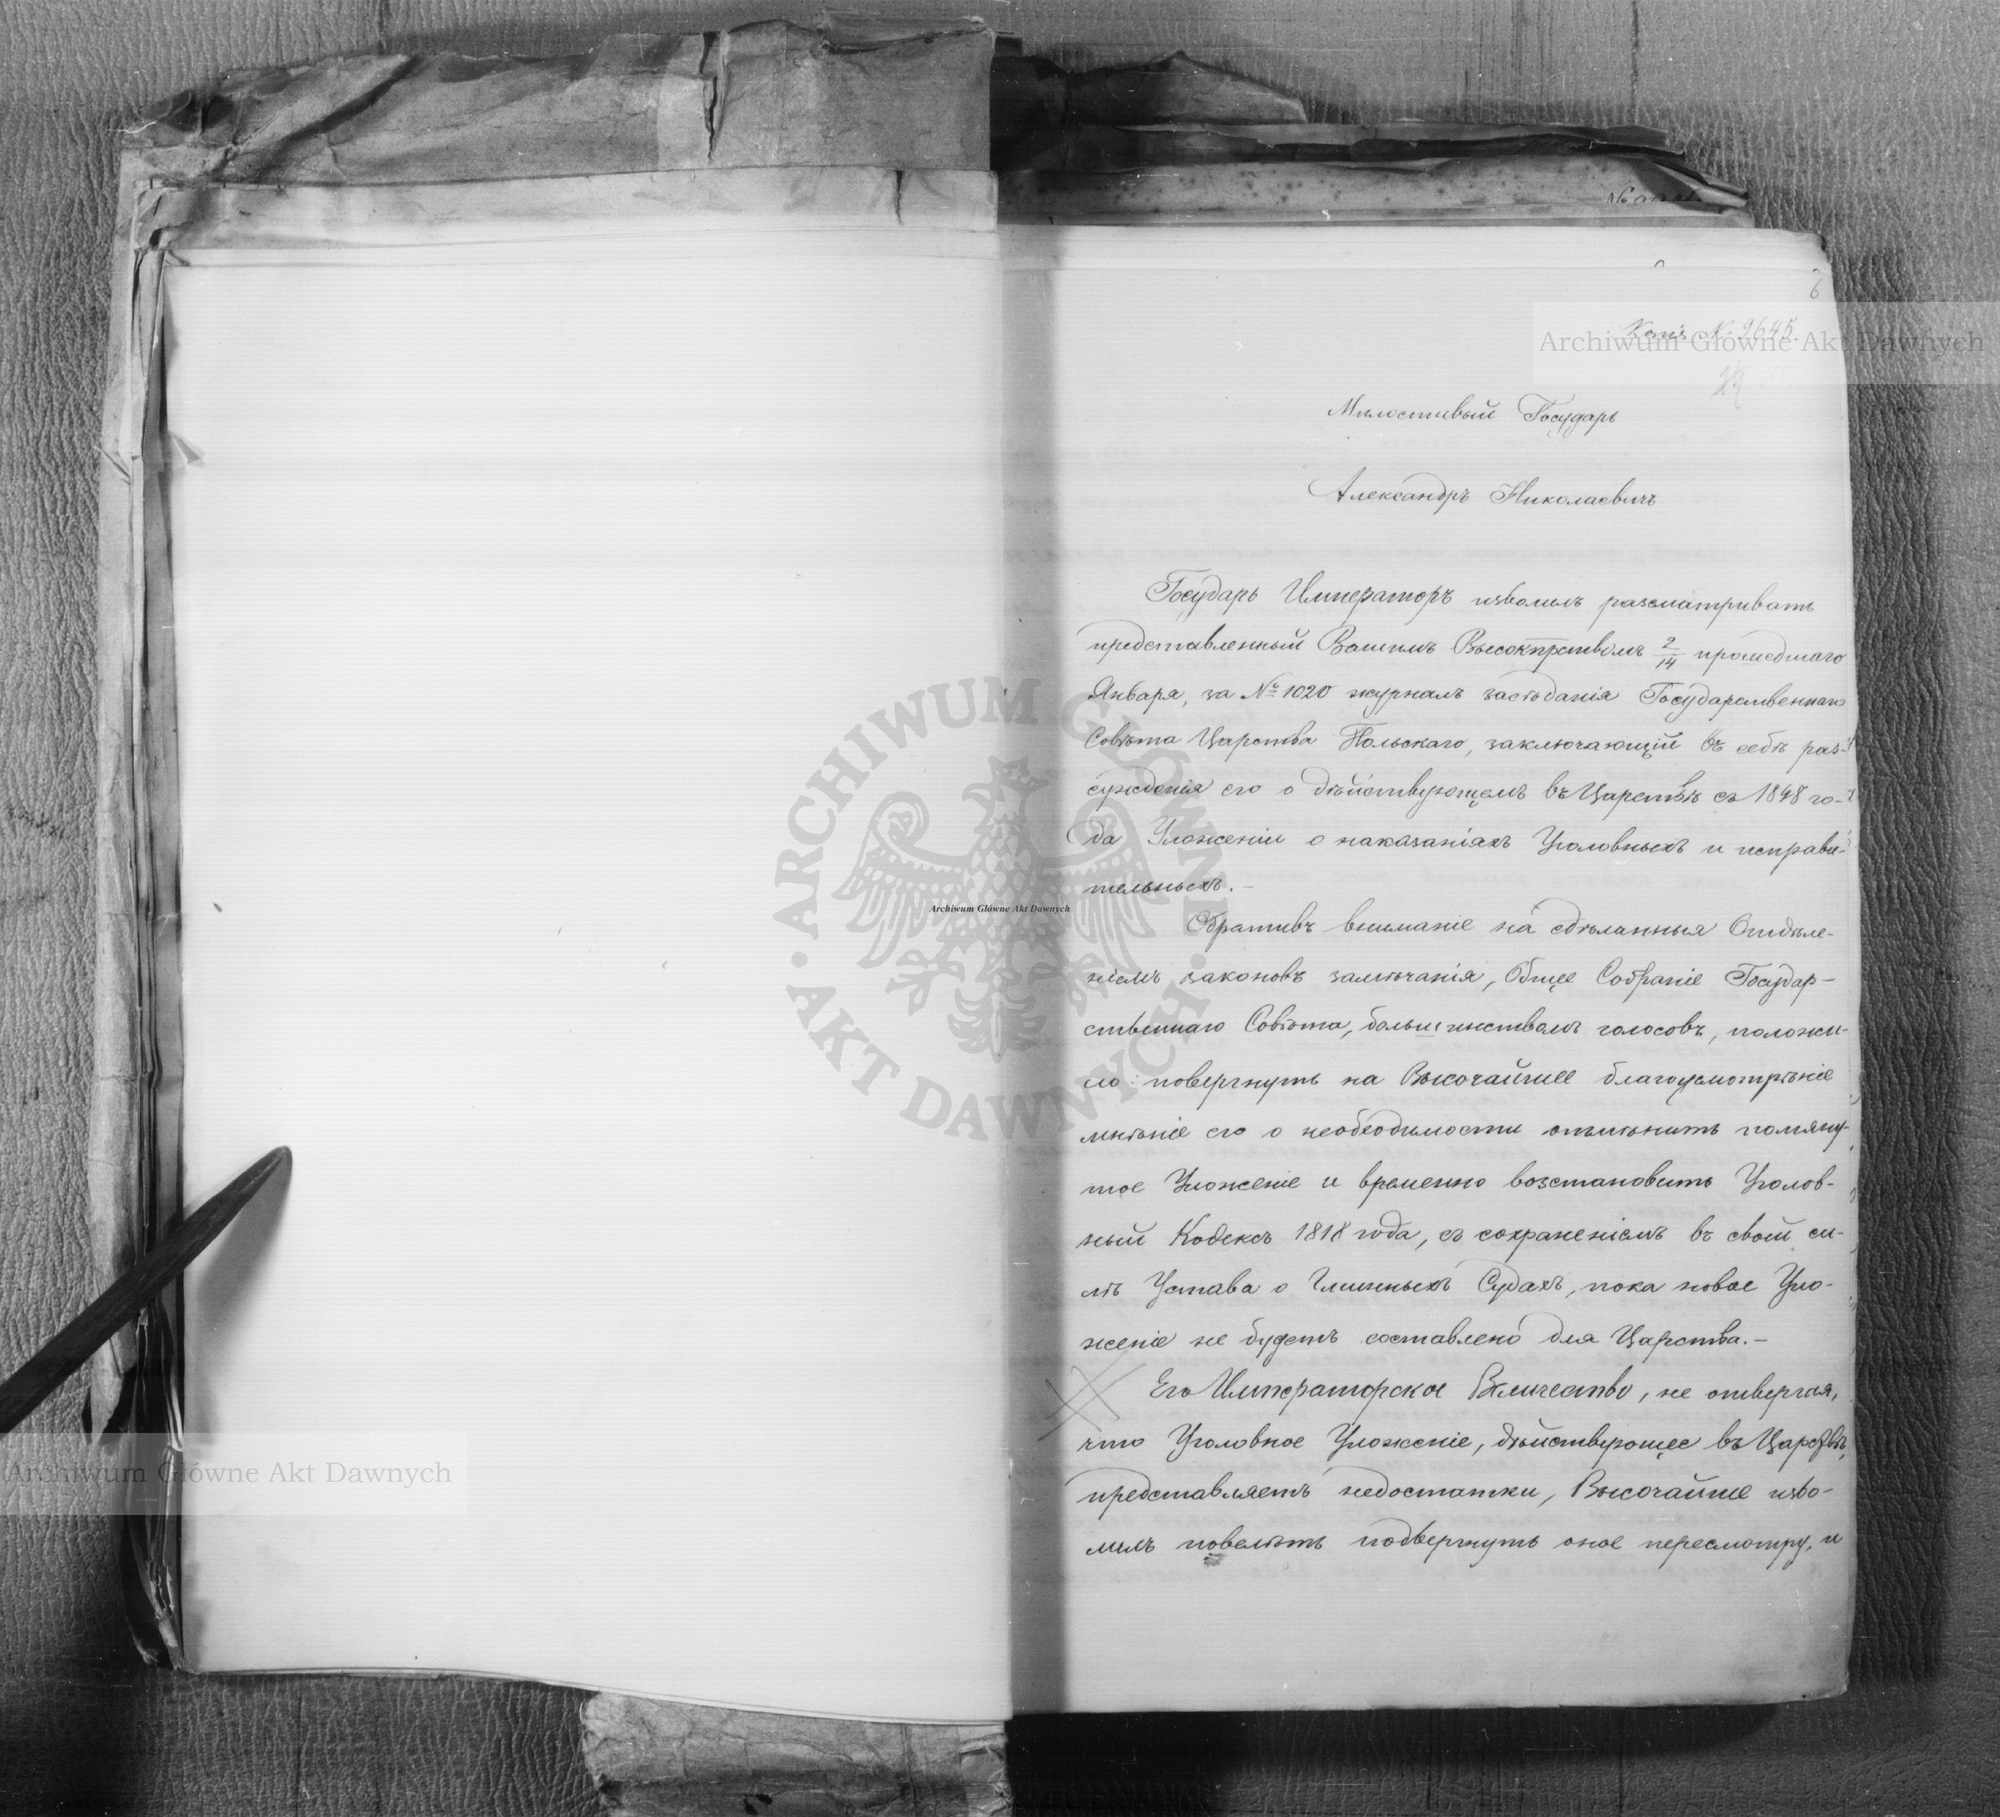 6
Копія № 2645.
Archiwum Główne Akt Dawnych
Милостивый Государь
Александръ Николаевичъ
Государь Императоръ изволилъ разсматривать
представленный Вашимъ Высокпрствомъ 2/14 прошедшаго
Января, за № 1020 журналъ засѣданія Государственнаго
Совѣта Царства Польскаго, заключающій въ себѣ раз-
сужденія его о дѣйствующемъ въ Царствѣ съ 1848 го-
да Уложеніи о наказаніяхъ Уголовныхъ и исправи-
тельныхъ. –
Обративъ вниманіе на сдѣланныя Отдѣле-
ніемъ законовъ замѣчанія, Общее Собраніе Государ-
ственнаго Совѣта, большинствомъ голосовъ, положи-
ло: повергнуть на Высочайшее благоусмотрѣніе
мнѣніе его о необходимости отмѣнить помяну-
тое Уложеніе и временно возстановить Уголов-
ный Кодексъ 1818 года, съ сохраненіемъ въ своей си-
лѣ Устава о Гминныхъ Судахъ, пока новое Уло-
женіе не будетъ составлено для Царства. –
Его Императорское Величество, не отвергая,
что Уголовное Уложеніе, дѣйствующее въ Царствѣ,
представляетъ недостатки, Высочайше изво-
лилъ повелѣть подвергнуть оное пересмотру, и
ARCHIWUM GŁÓWNE AKT DAWNYCH
Archiwum Główne Akt Dawnych
Archiwum Główne Akt Dawnych